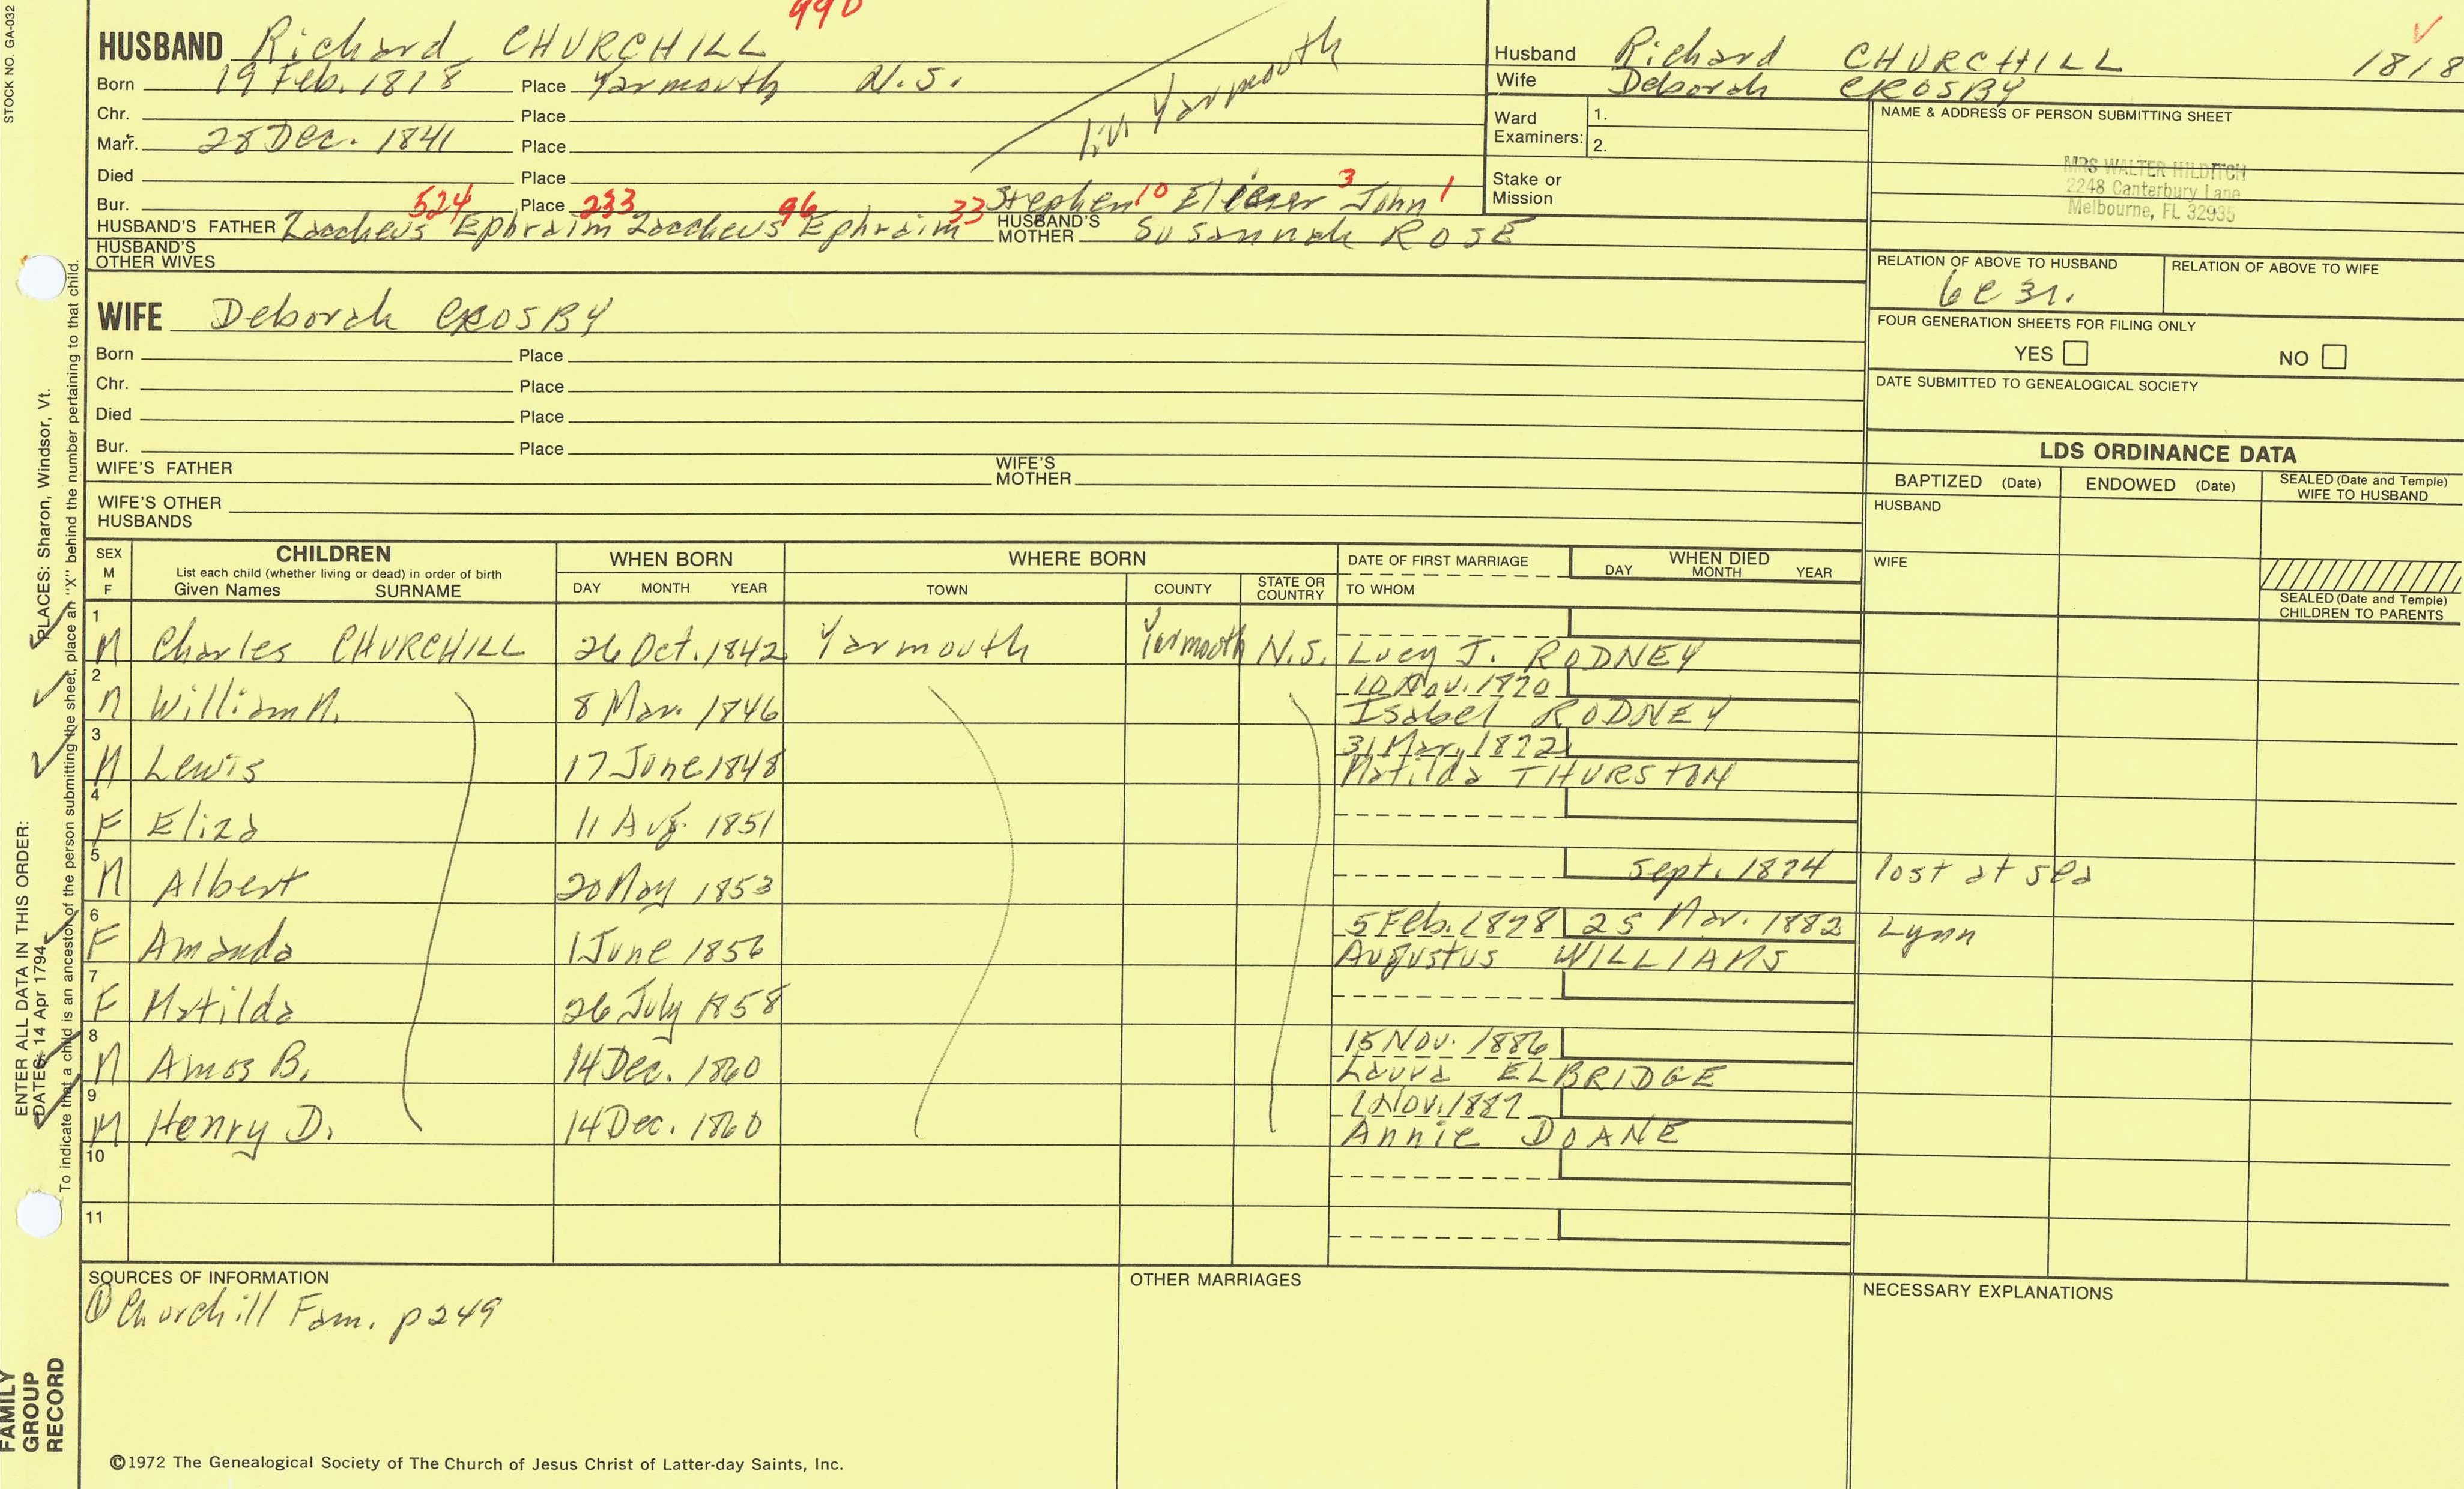 STOCK NO. GA-032
990
HUSBAND Richard CHURCHILL
Born 19 Feb. 1818 Place Yarmouth N.S.
Chr. Place
Marr. 28 Dec. 1841 Place
Died Place
Bur. Place
liv. Yarmouth
524 233 96 33 Stephen 10 Eliezer 3 John 1
HUSBAND'S FATHER Zaccheus Ephraim Zaccheus Ephraim HUSBAND'S MOTHER Susannah ROSE
HUSBAND'S OTHER WIVES
WIFE Deborah CROSBY
Born Place
Chr. Place
Died Place
Bur. Place
WIFE'S FATHER WIFE'S MOTHER
WIFE'S OTHER HUSBANDS
Husband Richard CHURCHILL 1818
Wife Deborah CROSBY
Ward Examiners: 1. 2.
Stake or Mission
NAME & ADDRESS OF PERSON SUBMITTING SHEET
MRS WALTER HILDITCH
2248 Canterbury Lane
Melbourne, FL 32935
RELATION OF ABOVE TO HUSBAND RELATION OF ABOVE TO WIFE
FOUR GENERATION SHEETS FOR FILING ONLY
YES NO
DATE SUBMITTED TO GENEALOGICAL SOCIETY
LDS ORDINANCE DATA
BAPTIZED (Date) ENDOWED (Date) SEALED (Date and Temple) WIFE TO HUSBAND
HUSBAND
WIFE
SEALED (Date and Temple) CHILDREN TO PARENTS
SEX M F CHILDREN WHEN BORN WHERE BORN DATE OF FIRST MARRIAGE WHEN DIED
List each child (whether living or dead) in order of birth
Given Names SURNAME DAY MONTH YEAR TOWN COUNTY STATE OR COUNTRY TO WHOM DAY MONTH YEAR
1 M Charles CHURCHILL 26 Oct. 1842 Yarmouth Yarmouth N.S. Lucy J. RODNEY
10 Nov. 1870
2 M William N. 8 Mar. 1846 Isabel RODNEY
31 Mar. 1872
3 M Lewis 17 June 1848 Matilda THURSTON
4 F Eliza 11 Aug. 1851
5 M Albert 20 May 1853 Sept. 1874 lost at sea
5 Feb. 1878 25 Mar. 1882 Lynn
6 F Amanda 1 June 1856 Augustus WILLIAMS
7 F Matilda 26 July 1858
15 Nov. 1886
8 M Amos B. 14 Dec. 1860 Laura ELBRIDGE
1 Nov. 1887
9 M Henry D. 14 Dec. 1860 Annie DOANE
10
11
SOURCES OF INFORMATION
① Churchill Fam. p 249
OTHER MARRIAGES
NECESSARY EXPLANATIONS
©1972 The Genealogical Society of The Church of Jesus Christ of Latter-day Saints, Inc.
ENTER ALL DATA IN THIS ORDER:
DATES: 14 Apr 1794 PLACES: Sharon, Windsor, Vt.
To indicate that a child is an ancestor of the person submitting the sheet, place an "X" behind the number pertaining to that child.
FAMILY
GROUP
RECORD